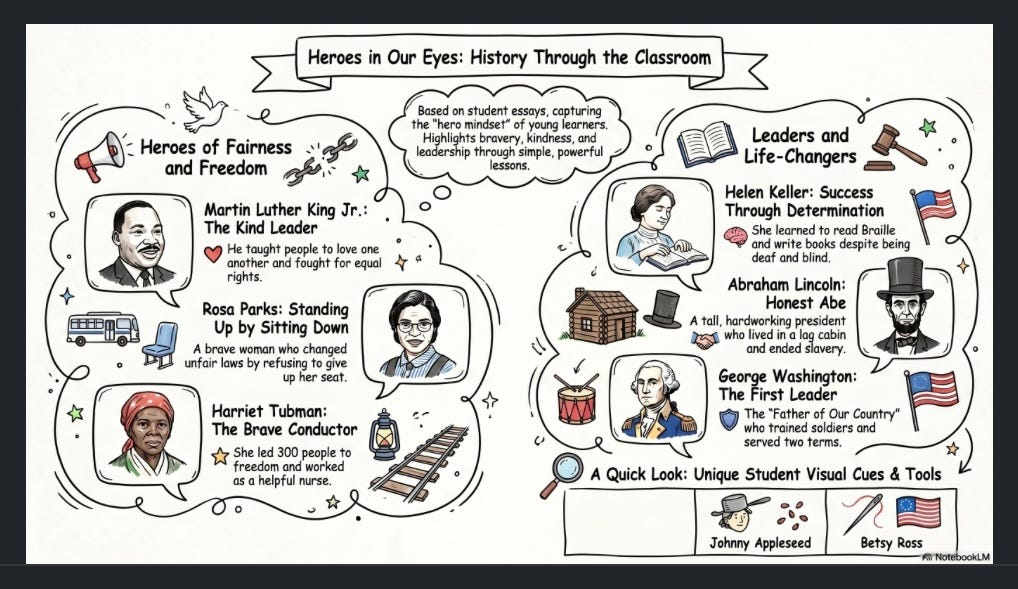 Heroes in Our Eyes: History Through the Classroom
Based on student essays, capturing
the "hero mindset" of young learners.
Highlights bravery, kindness, and
leadership through simple, powerful
lessons.
Heroes of Fairness
and Freedom
Martin Luther King Jr.:
The Kind Leader
He taught people to love one
another and fought for equal
rights.
Rosa Parks: Standing
Up by Sitting Down
A brave woman who changed
unfair laws by refusing to give
up her seat.
Harriet Tubman:
The Brave Conductor
She led 300 people to
freedom and worked
as a helpful nurse.
Leaders and
Life-Changers
Helen Keller: Success
Through Determination
She learned to read Braille
and write books despite being
deaf and blind.
Abraham Lincoln:
Honest Abe
A tall, hardworking president
who lived in a log cabin
and ended slavery.
George Washington:
The First Leader
The "Father of Our Country"
who trained soldiers and
served two terms.
A Quick Look: Unique Student Visual Cues & Tools
Johnny Appleseed
Betsy Ross
NotebookLM